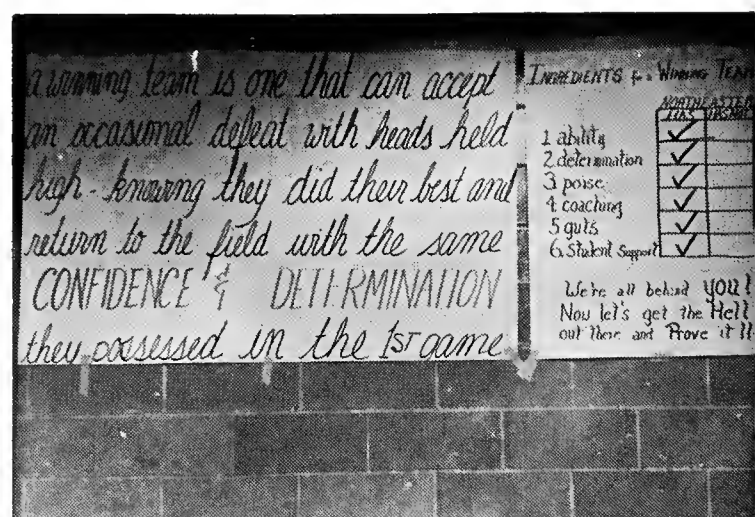 a winning team is one that can accept
an occasional defeat with heads held
high - knowing they did their best and
return to the field with the same
CONFIDENCE & DETERMINATION
they possessed in the 1ST game
INGREDIENTS for a WINNING TEA
NORTHEASTER
HAS HASN
1 ability
2. determination
3. poise
4. coaching
5 guts
6. Student Support
We're all behind YOU!
Now let's get the Hell
out there and Prove it !!